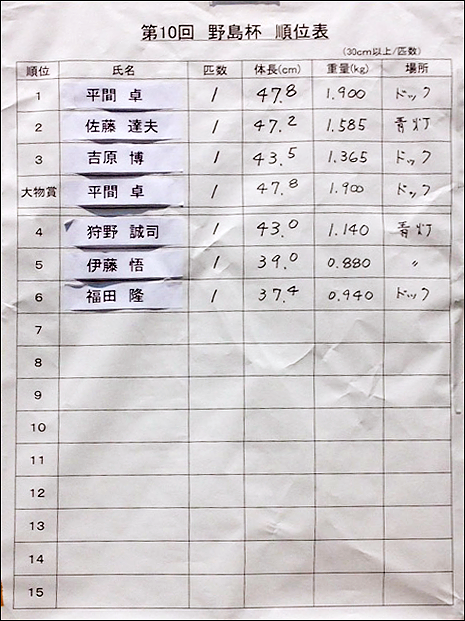 第10回 野島杯 順位表
(30cm以上/匹数)
順位 氏名 匹数 体長(cm) 重量(kg) 場所
1 平間 卓 1 47.8 1.900 ドック
2 佐藤 達夫 1 47.2 1.585 青灯
3 吉原 博 1 43.5 1.365 ドック
大物賞 平間 卓 1 47.8 1.900 ドック
4 狩野 誠司 1 43.0 1.140 青灯
5 伊藤 悟 1 39.0 0.880 〃
6 福田 隆 1 37.4 0.940 ドック
7
8
9
10
11
12
13
14
15